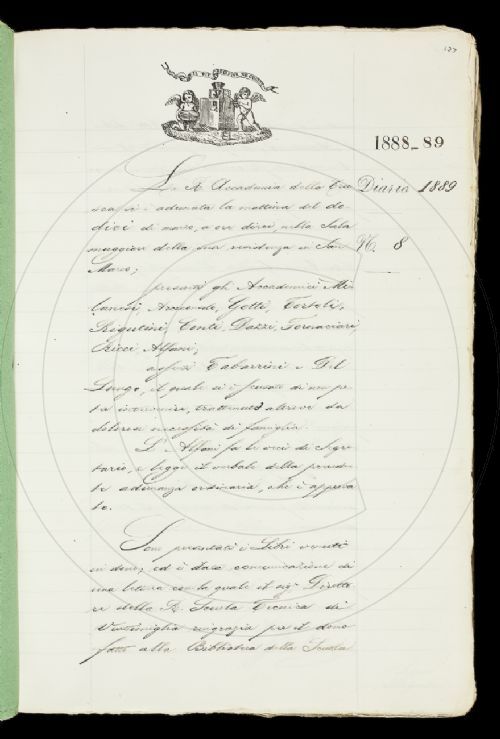 IL PIÙ BEL FIOR NE COGLIE
1888-89
Diario 1889
N. 8
La R. Accademia della Cru
sca si è adunata la mattina del do
dici di marzo, a ore dieci, nella Sala
maggiore della sua residenza in San
Marco;
presenti gli Accademici Mi
lanesi, Gotti, Tortoli,
Rigutini, Conti, Dazzi, Fornaciari,
Ricci, Alfani;
assenti Tabarrini e Del
Lungo, il quale si è scusato di non po
ter intervenire, trattenuto altrove da
dolorosa necessità di famiglia.
L'Alfani fa le veci di Segre
tario, e legge il verbale della preceden
te adunanza ordinaria, che è approva
to.
Sono presentati i Libri venuti
in dono, ed è data comunicazione di
una lettera con la quale il sig. Diretto
re della R. Scuola Tecnica di
Ventimiglia ringrazia per il dono
fatto alla Biblioteca della Scuola